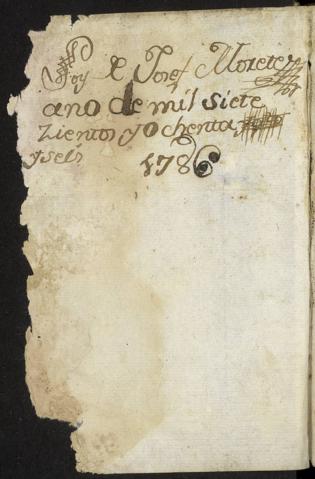 Soy de Josef Morete
ano de mil siete
zientos y ochenta
y seis
1786